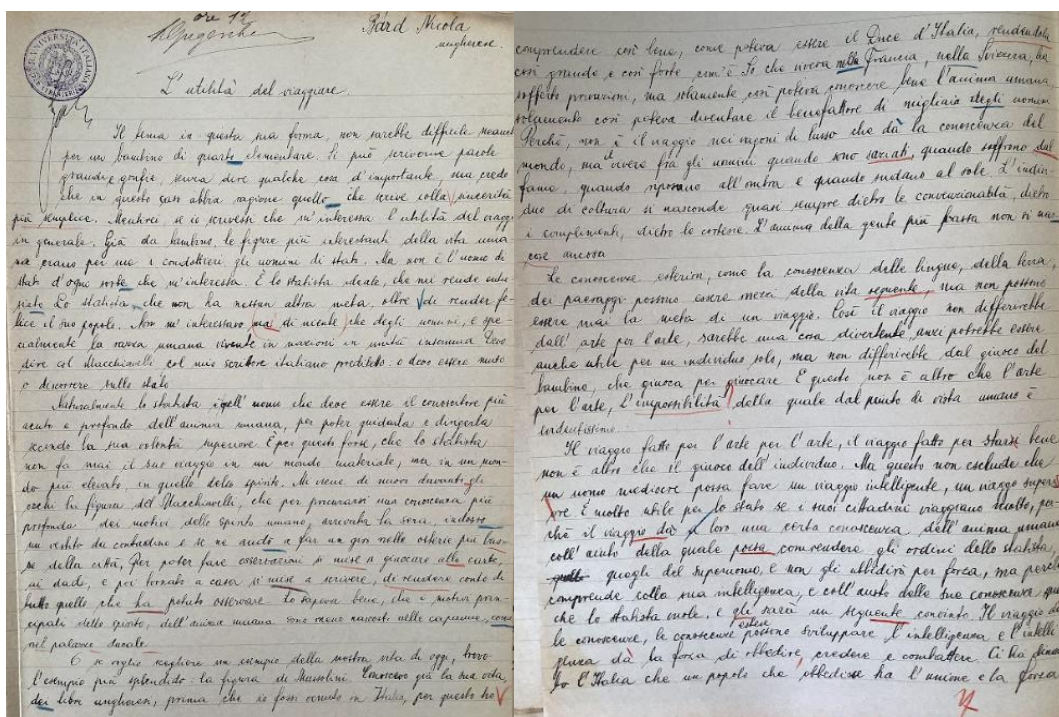 ore 12
Bárd Nicola
ungherese.
L'utilità del viaggiare.
Il tema in questa sua forma, non sarebbe difficile neanche
per un bambino di quarta elementare. Si può scriverne parole
grandi e gonfie, senza dire qualche cosa d'importante, ma credo
che in questo caso abbia ragione quello che scrive colla sincerità
più semplice. Mentirei se io scrivessi che m'interessa l'utilità del viaggio
in generale. Già da bambino, le figure più interessanti della vita uma
na erano per me i condottieri, gli uomini di stato. Ma non è l'uomo di
stato d'ogni sorte che m'interessa. È lo statista ideale, che mi rende entu
siate. Lo statista, che non ha nessun altra meta, oltre di render fe
lice il suo popolo. Non m'interessavo mai di niente che degli uomini, e spe
cialmente la razza umana vivente in nazioni in unità insomma Devo
dire col Macchiavelli col mio scrittore italiano prediletto: o devo essere muto
o discorrere sullo stato
Naturalmente lo statista è quell'uomo che deve essere il conoscitore più
acuto e profondo dell'anima umana, per poter guidarla e dirigerla
secondo la sua volontà superiore. È per questo forse, che lo statista
non fa mai il suo viaggio in un mondo materiale, ma in un mon
do più elevato, in quello dello spirito. Mi viene di nuovo davanti gli
occhi la figura del Macchiavelli, che per procurarsi una conoscenza più
profonda dei motivi dello spirito umano, arrivata la sera, indosso
un vestito da contadino e se ne andò a far un giro nelle osterie più bas
se della città. Per poter fare osservazioni si mise a giuocare alle carte,
ai dadi, e poi tornato a casa si mise a scrivere, di rendere conto di
tutto quello che ha potuto osservare. Lo sapeva bene, che i motivi prin
cipali dello spirito, dell'anima umana sono meno nascosti nelle capanne, come
nel palazzo ducale.
O se voglio togliere un esempio della nostra vita di oggi, trovo
l'esempio più splendido: la figura di Mussolini. Conoscevo già la sua vita,
dei libri ungheresi, prima che io fossi venuto in Italia, per questo ho
comprendere così bene, come poteva essere il Duce d'Italia, rendendola
così grande e così forte com'è. So che viveva nella Francia, nella Svizzera, ha
sofferto privazioni, ma solamente così poteva conoscere bene l'anima umana,
solamente così poteva diventare il benefattore di migliaia degli uomini
Perchè, non è il viaggio nei vagoni di lusso che dà la conoscenza del
mondo, ma il vivere fra gli uomini quando sono saziati, quando soffrono dal
fame, quando riposano all'ombra e quando sudano al sole. L'indivi
duo di coltura si nasconde quasi sempre dietro le convenzionalità, dietro
i complimenti, dietro le cortesie. L'anima della gente più bassa non si nas
cose ancora
Le conoscenze esteriori, come la conoscenza delle lingue, della terra,
dei paesaggi possono essere mezzi della vita seguente, ma non possono
essere mai la meta di un viaggio. Così il viaggio non differirebbe
dall'arte per l'arte, sarebbe una cosa divertente, anzi potrebbe essere
anche utile per un individuo solo, ma non differirebbe dal giuoco del
bambino, che giuoca per giuocare E questo non è altro che l'arte
per l'arte, L'impossibilità della quale dal punto di vista umano è
evidentissimo.
Il viaggio fatto per l'arte per l'arte, il viaggio fatto per stare bene
non è altro che il giuoco dell'individuo. Ma questo non esclude che
un uomo mediocre possa fare un viaggio intelligente, un viaggio superi
ore. È molto utile per lo stato se i suoi cittadini viaggiano molto, per
chè il viaggio dà a loro una certa conoscenza dell'anima umana
coll'aiuto della quale possa comprendere gli ordini dello statista
quegli del superuomo, e non gli ubbidirà per forza, ma perchè
comprende colla sua intelligenza, e coll'aiuto della sua conoscenza
che lo statista vuole. e gli sarà un seguente convinto. Il viaggio
le conoscenze, le conoscenze possono esser sviluppare l'intelligenza e l'intelli
genza dà la forza di obbedire, credere e combattere. Ci ha
to l'Italia che un popolo che obbedisse ha l'unione e la forza